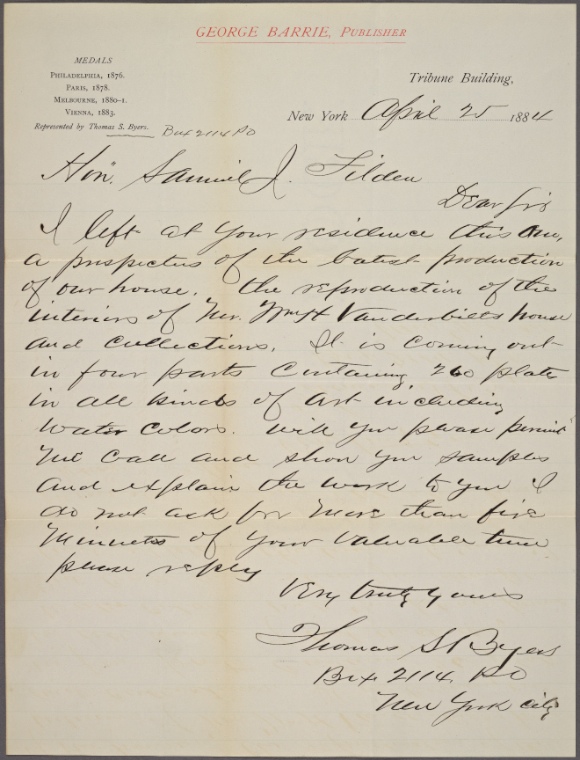 GEORGE BARRIE, PUBLISHER
MEDALS
PHILADELPHIA, 1876.
PARIS, 1878.
MELBOURNE, 1880-1.
VIENNA, 1883.
Represented by Thomas S. Byers.
Box 2114 PO
Tribune Building,
New York April 25 1884
Hon. Samuel J. Tilden
Dear Sir
I left at your residence this
a prospectus of the latest production
of our house. the reproduction of the
interiors of Mr. Wm H Vanderbilts house
and collections. It is coming out
in four parts containing 260 plate
in all kinds of art including
water colors. will you please permit
me call and show you samples
and explain the work to you I
do not ask for more than five
minutes of your valuable time
please reply
Very truly yours
Thomas S Byers
Box 2114 PO
New York city